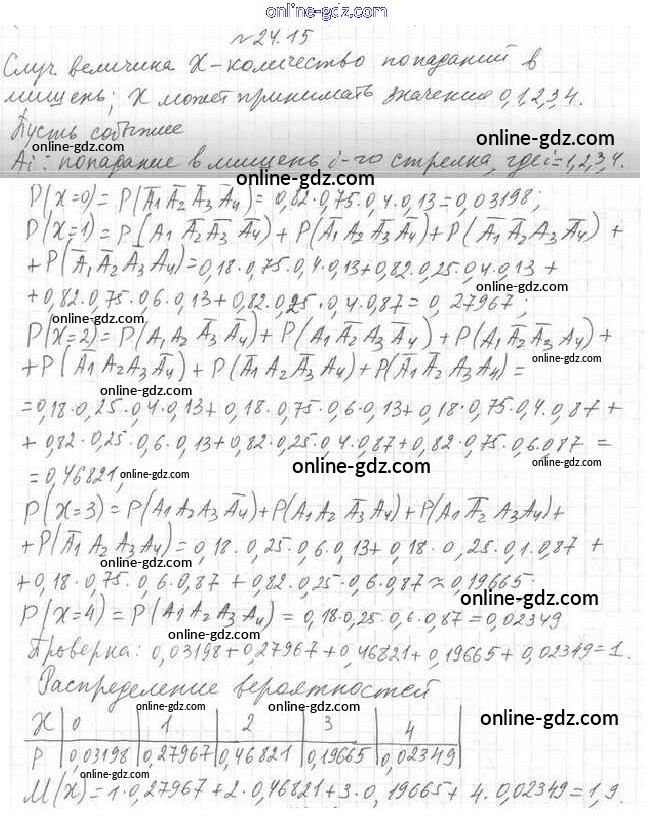 online-gdz.com
№24.15
Случ величина X-количество попаданий в
мишень; X может принимать значения 0,1,2,3,4.
Пусть событие
online-gdz.com
Ai: попадание в мишень i-го стрелка, где i=1,2,3,4.
online-gdz.com
P(X=0)=P(A̅1 A̅2 A̅3 A̅4)=0,82·0,75·0,4·0,13=0,03198;
P(X=1)=P(A1 A̅2 A̅3 A̅4)+P(A̅1 A2 A̅3 A̅4)+P(A̅1 A̅2 A3 A̅4)+
+P(A̅1 A̅2 A̅3 A4)=0,18·0,75·0,4·0,13+0,82·0,25·0,4·0,13+
online-gdz.com
+0,82·0,75·0,6·0,13+0,82·0,25·0,4·0,87=0,27967;
online-gdz.com
P(X=2)=P(A1 A2 A̅3 A̅4)+P(A1 A̅2 A3 A̅4)+P(A1 A̅2 A̅3 A4)+
online-gdz.com
+P(A̅1 A2 A3 A̅4)+P(A̅1 A2 A̅3 A4)+P(A̅1 A̅2 A3 A4)=
online-gdz.com
=0,18·0,25·0,4·0,13+0,18·0,75·0,6·0,13+0,18·0,75·0,4·0,87+
online-gdz.com
+0,82·0,25·0,6·0,13+0,82·0,25·0,4·0,87+0,82·0,75·0,6·0,87=
online-gdz.com
=0,46821,
online-gdz.com
online-gdz.com
P(X=3)=P(A1 A2 A3 A̅4)+P(A1 A2 A̅3 A4)+P(A1 A̅2 A3 A4)+
online-gdz.com
+P(A̅1 A2 A3 A4)=0,18·0,25·0,6·0,13+0,18·0,25·0,1·0,87+
+0,18·0,75·0,6·0,87+0,82·0,25·0,6·0,87≈0,19665.
online-gdz.com
online-gdz.com
P(X=4)=P(A1 A2 A3 A4)=0,18·0,25·0,6·0,87=0,02349
online-gdz.com
online-gdz.com
Проверка: 0,03198+0,27967+0,46821+0,19665+0,02349=1.
Распределение вероятностей
online-gdz.com
online-gdz.com
online-gdz.com
X 0 1 2 3 4
P 0,03198 0,27967 0,46821 0,19665 0,02349
online-gdz.com
online-gdz.com
online-gdz.com
M(X)=1·0,27967+2·0,46821+3·0,19665+4·0,02349=1,9.